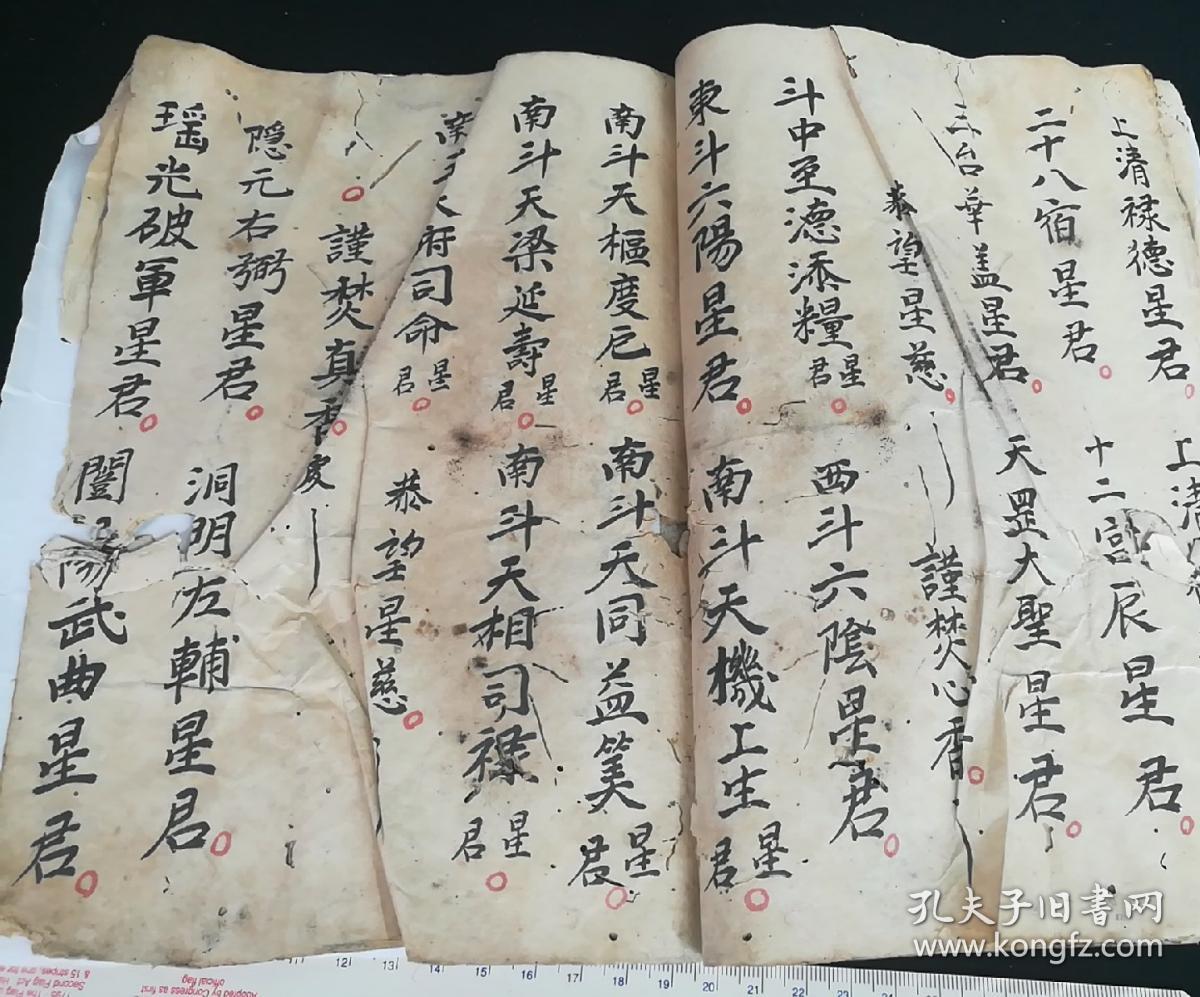 上清禄德星君 上清
二十八宿星君 十二宫辰星君
三台華盖星君 天罡大聖星君
恭望星慈 謹焚心香
斗中至德添糧星君 西斗六陰星君
東斗六陽星君 南斗天機上生星君
南斗天樞度厄星君 南斗天同益筭星君
南斗天梁延壽星君 南斗天相司禄星君
府司命星君 恭望星慈
謹焚真香
隐元右弼星君 洞明左輔星君
瑶光破軍星君 陽武曲星君
孔夫子旧书网
www.kongfz.com
12 13 14 15 16 17 18 19 20 21 22 23
Adopted by Congress as first
official flag
Second Flag Act
& 15 stripes